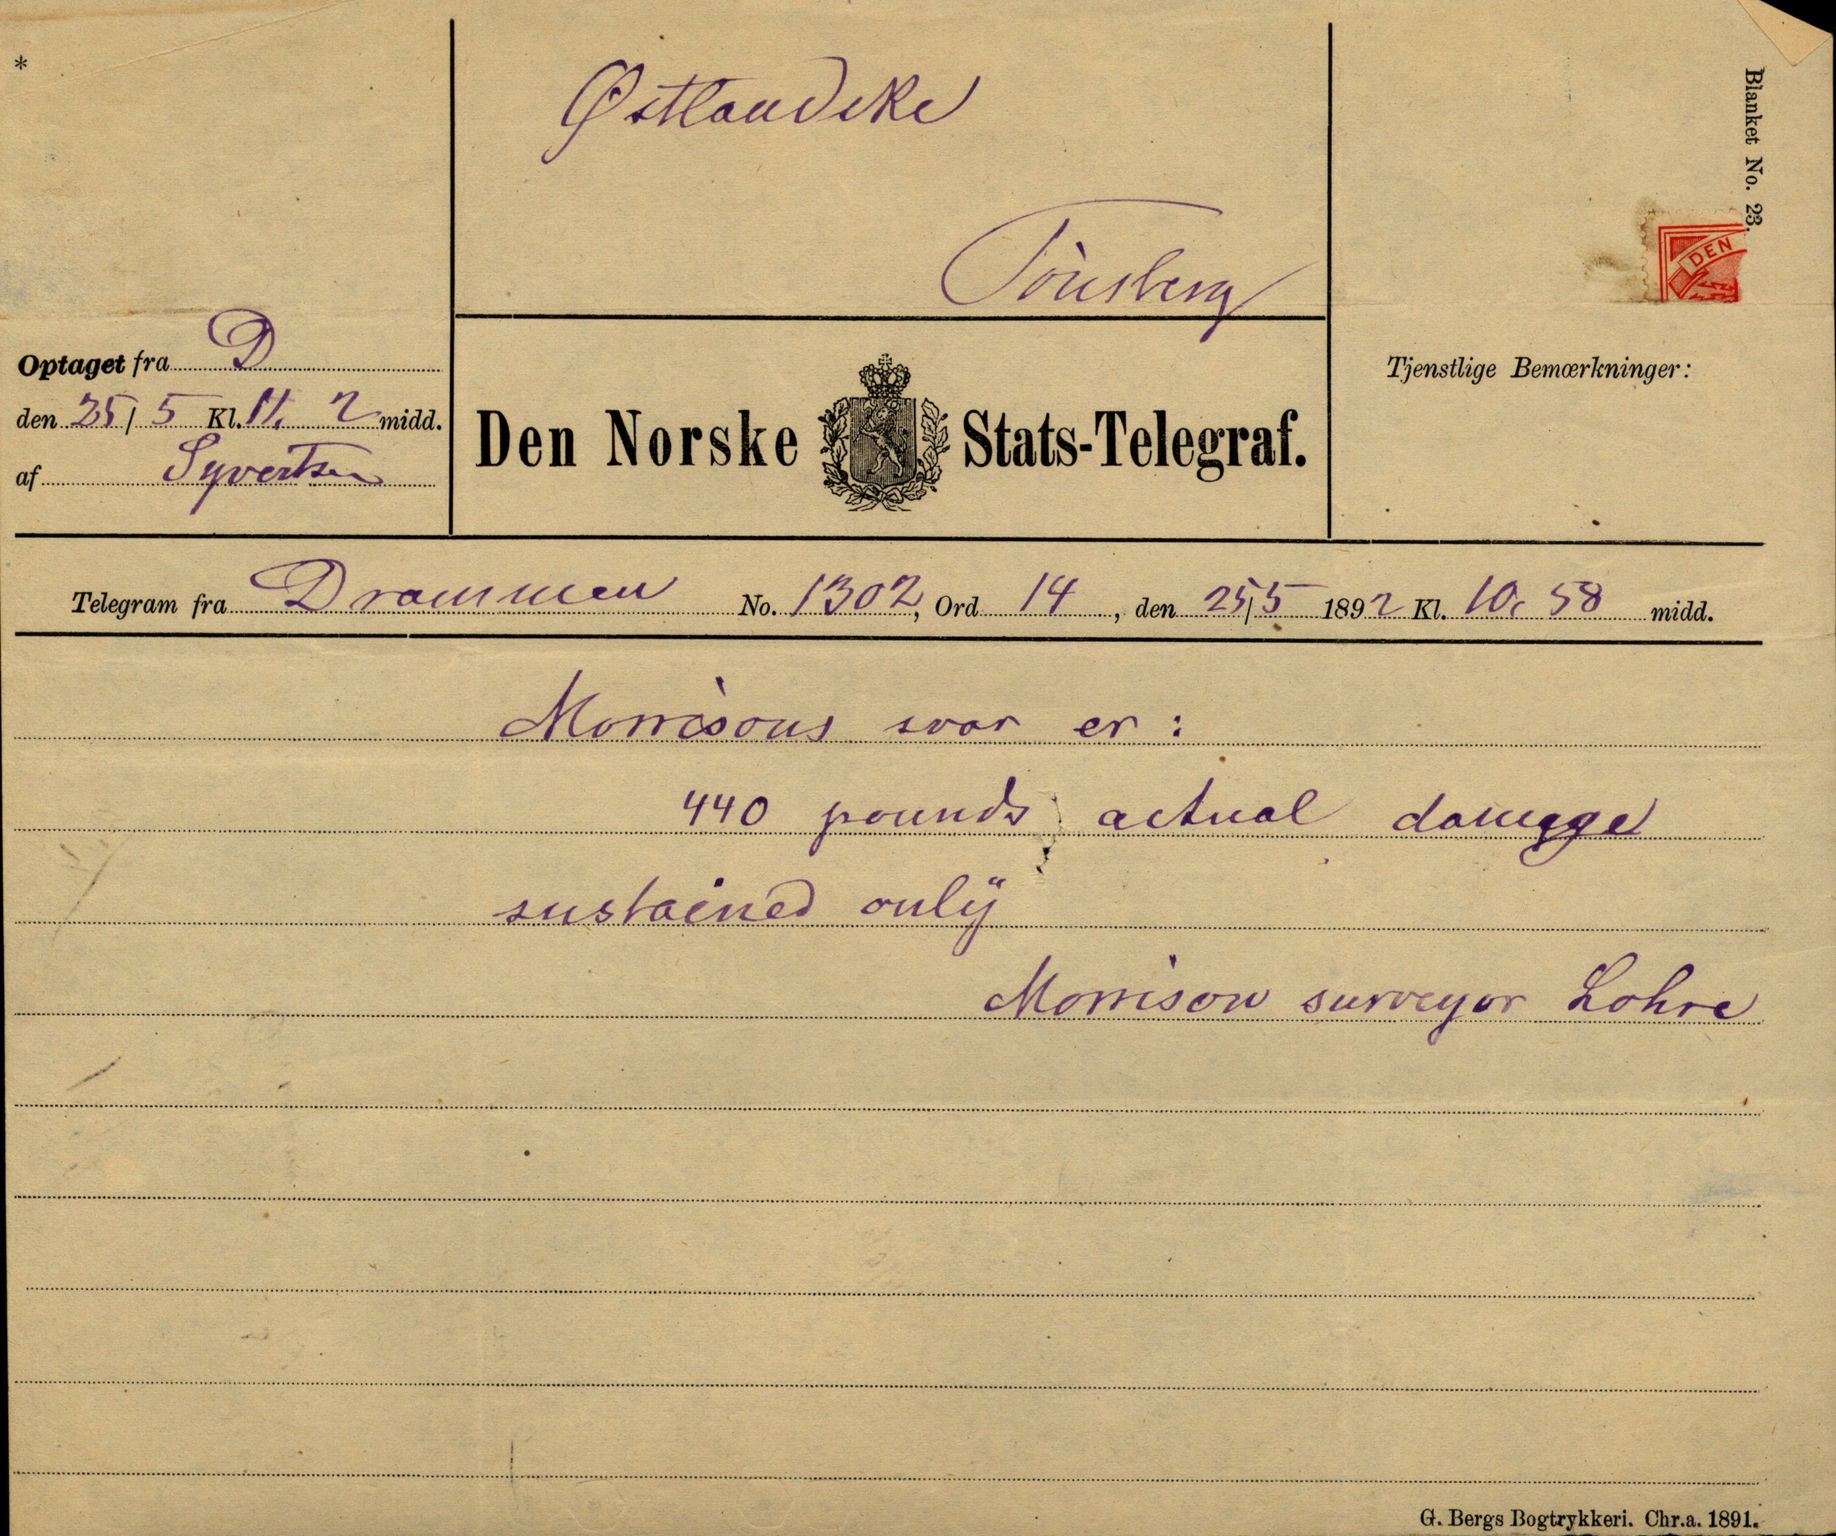 *
Østlandske
Tönsberg
Blanket No. 23.
DEN
Optaget fra D
den 25/5 Kl. 11. 2 midd.
af Syvertsen
Den Norske Stats-Telegraf.
Tjenstlige Bemærkninger:
Telegram fra Drammen No. 1302, Ord 14, den 25/5 1892 Kl. 10. 58 midd.
Morrisons svar er:
440 pounds actual damage
sustained only
Morrison surveyor Lohre
G. Bergs Bogtrykkeri. Chr.a. 1891.